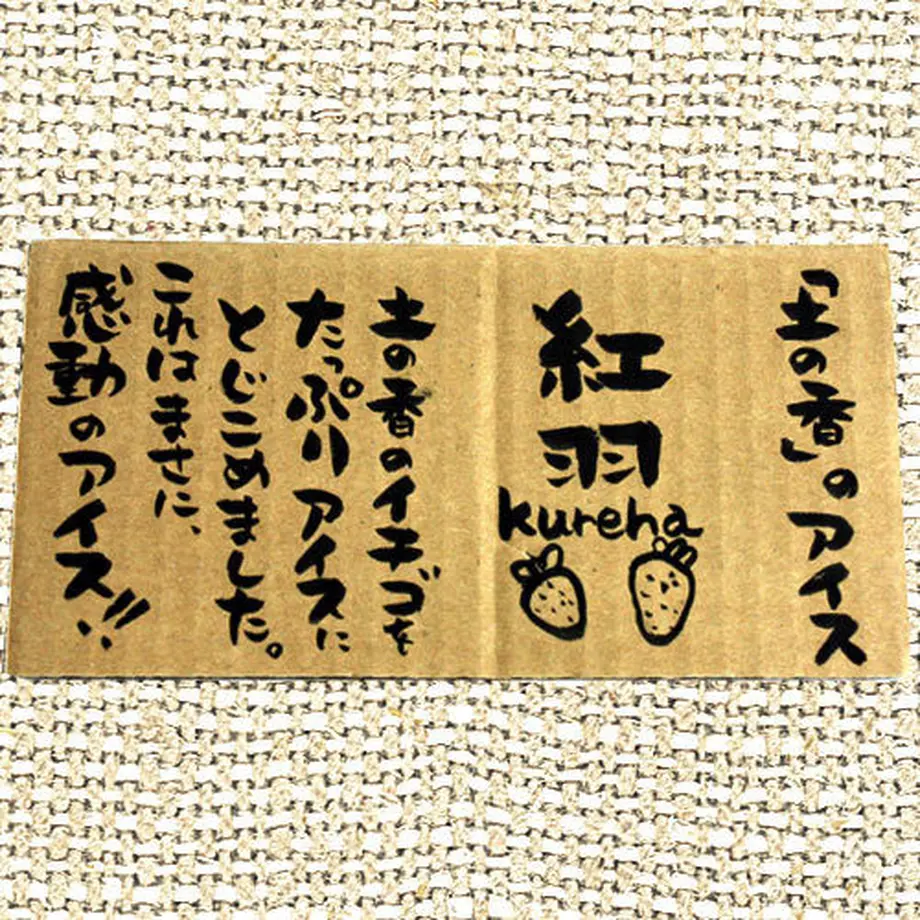 「土の香」のアイス
紅羽
kureha
土の香のイチゴを
たっぷりアイスに
とじこめました。
これはまさに、
感動のアイス!!